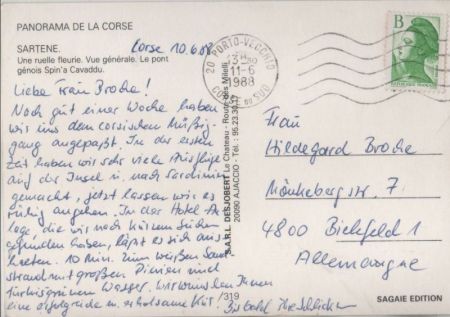 PANORAMA DE LA CORSE
SARTENE.
Une ruelle fleurie. Vue générale. Le pont
génois Spin'a Cavaddu.
Corse 10.6.88
Liebe Frau Broche!
Nach gut einer Woche haben
wir uns dem corsischen Müßig
gang angepaßt. In der ersten
Zeit haben wir sehr viele Ausflüge
auf der Insel u. nach Sardinien
gemacht, jetzt lassen wir es
ruhig angehen. In der Hotel An
lage, die wir nach kurzem Suchen
gefunden haben, läßt es sich aus
halten. 10 Min. zum weißen Sand
strand mit großen Pinien und
türkisgrünem Wasser. Wir wünschen Ihnen
eine erfolgreiche u. erholsame Kur! Bis bald Ihre
S.A.R.L. DESJOBERT Le Chateau - Route des Milelli
20090 AJACCIO - Tél. : 95.23.30.17
/319
20 PORTO-VECCHIO
11-6
1988
CORSE DU SUD
B
Frau
Hildegard Broche
Mönkebergstr. 7
4800 Bielefeld 1
Allemagne
SAGAIE EDITION